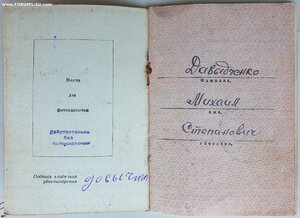 www.FORUMS-SU.com
Место
для
фотокарточки
Действительно
без
фотокарточки
Подпись владельца
удостоверения
Давидченко
Фамилия,
Михаил
имя,
Степанович
отчество